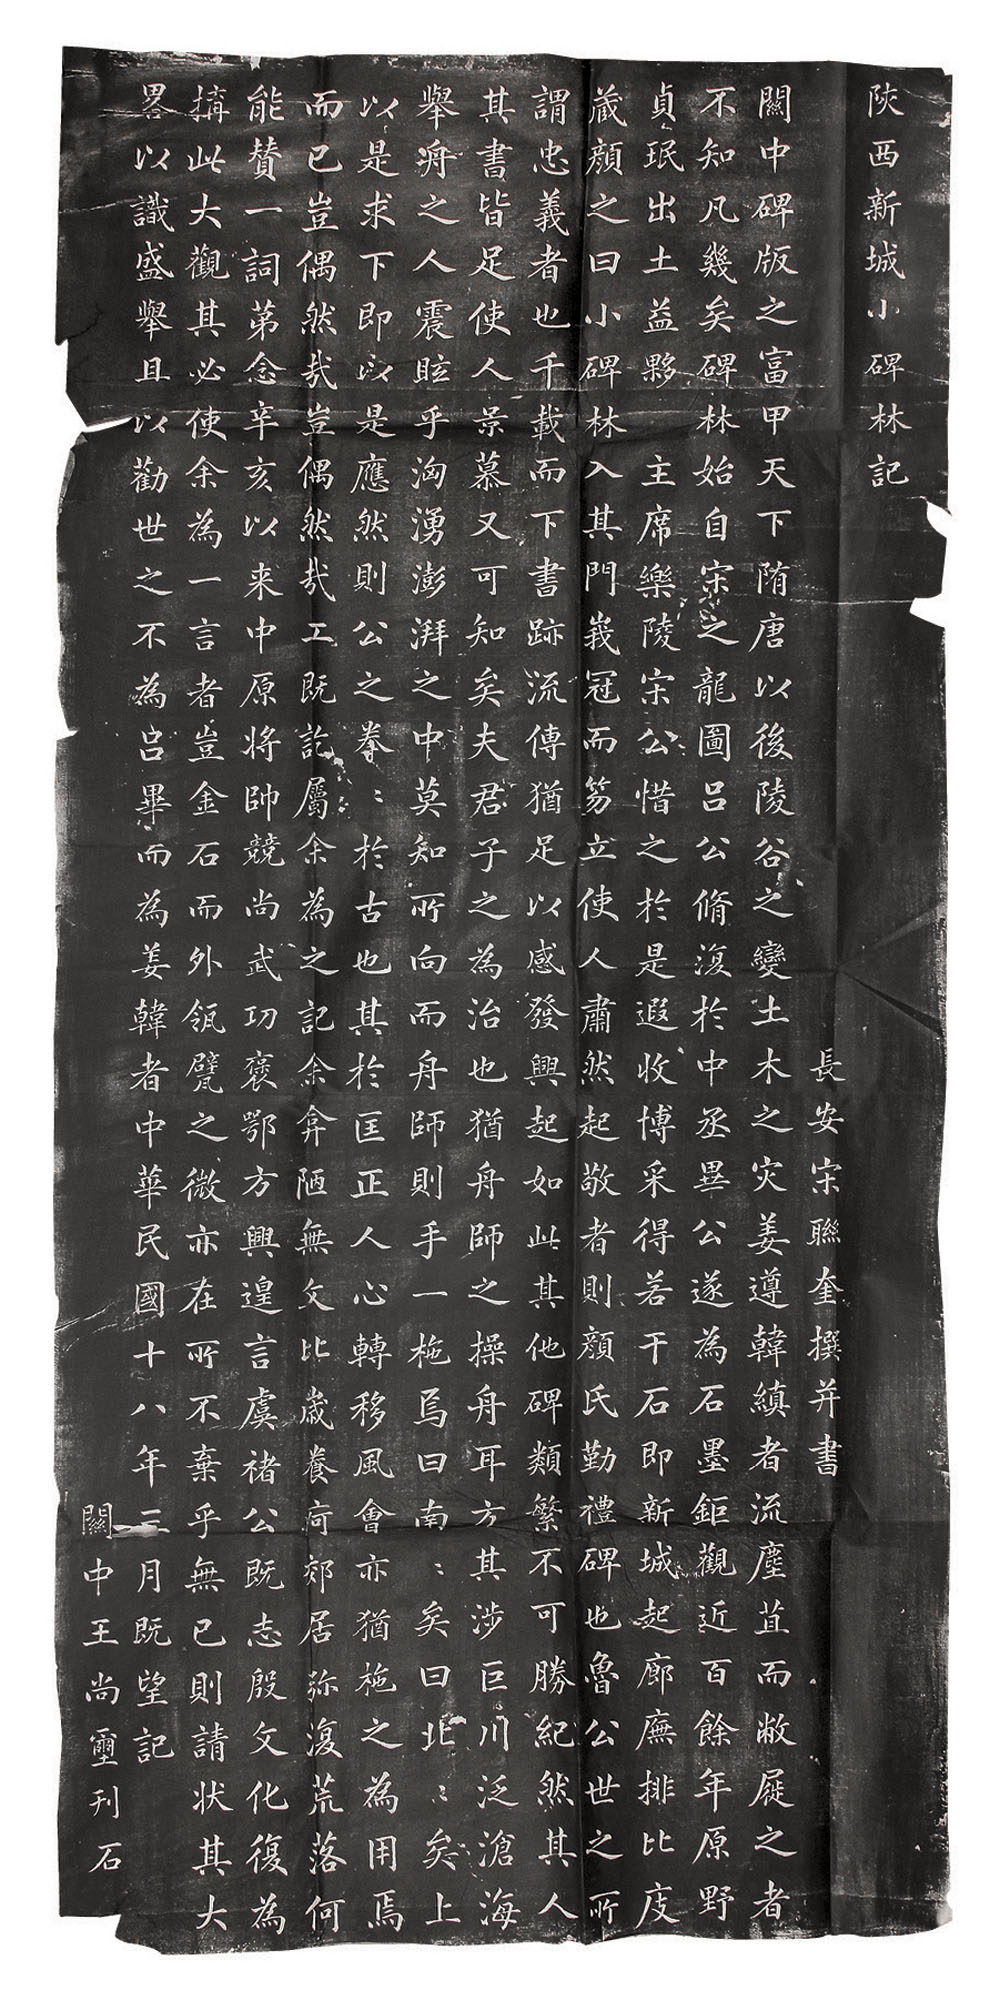 陝西新城小碑林記
長安宋聯奎撰并書
關中碑版之富甲天下隋唐以後陵谷之變土木之灾姜遵韓縝者流塵苴而敝屣之者
不知凡幾矣碑林始自宋之龍圖呂公脩復於中丞畢公遂為石墨鉅觀近百餘年原野
貞珉出土益夥　主席樂陵宋公惜之於是遐收博采得若干石即新城起廊廡排比庋
藏顏之曰小碑林入其門峩冠而笏立使人肅然起敬者則顏氏勤禮碑也魯公世之所
謂忠義者也千載而下書跡流傳猶足以感發興起如此其他碑類繁不可勝紀然其人
其書皆足使人景慕又可知矣夫君子之為治也猶舟師之操舟耳方其涉巨川泛滄海
舉洲之人震眩乎洶湧澎湃之中莫知所向而舟師則手一柁焉曰南〻矣曰北〻矣上
以是求下即以是應然則公之拳〻於古也其於匡正人心轉移風會亦猶柁之為用焉
而已豈偶然哉豈偶然哉工既訖屬余為之記余弇陋無文比歲養疴郊居弥復荒落何
能贊一詞第念辛亥以来中原將帥競尚武功褒鄂方興遑言虞褚公既志殷文化復為
搆此大觀其必使余為一言者豈金石而外瓴甓之微亦在所不棄乎無已則請状其大
畧以識盛舉且以勸世之不為呂畢而為姜韓者中華民國十八年三月既望記
關中王尚璽刊石